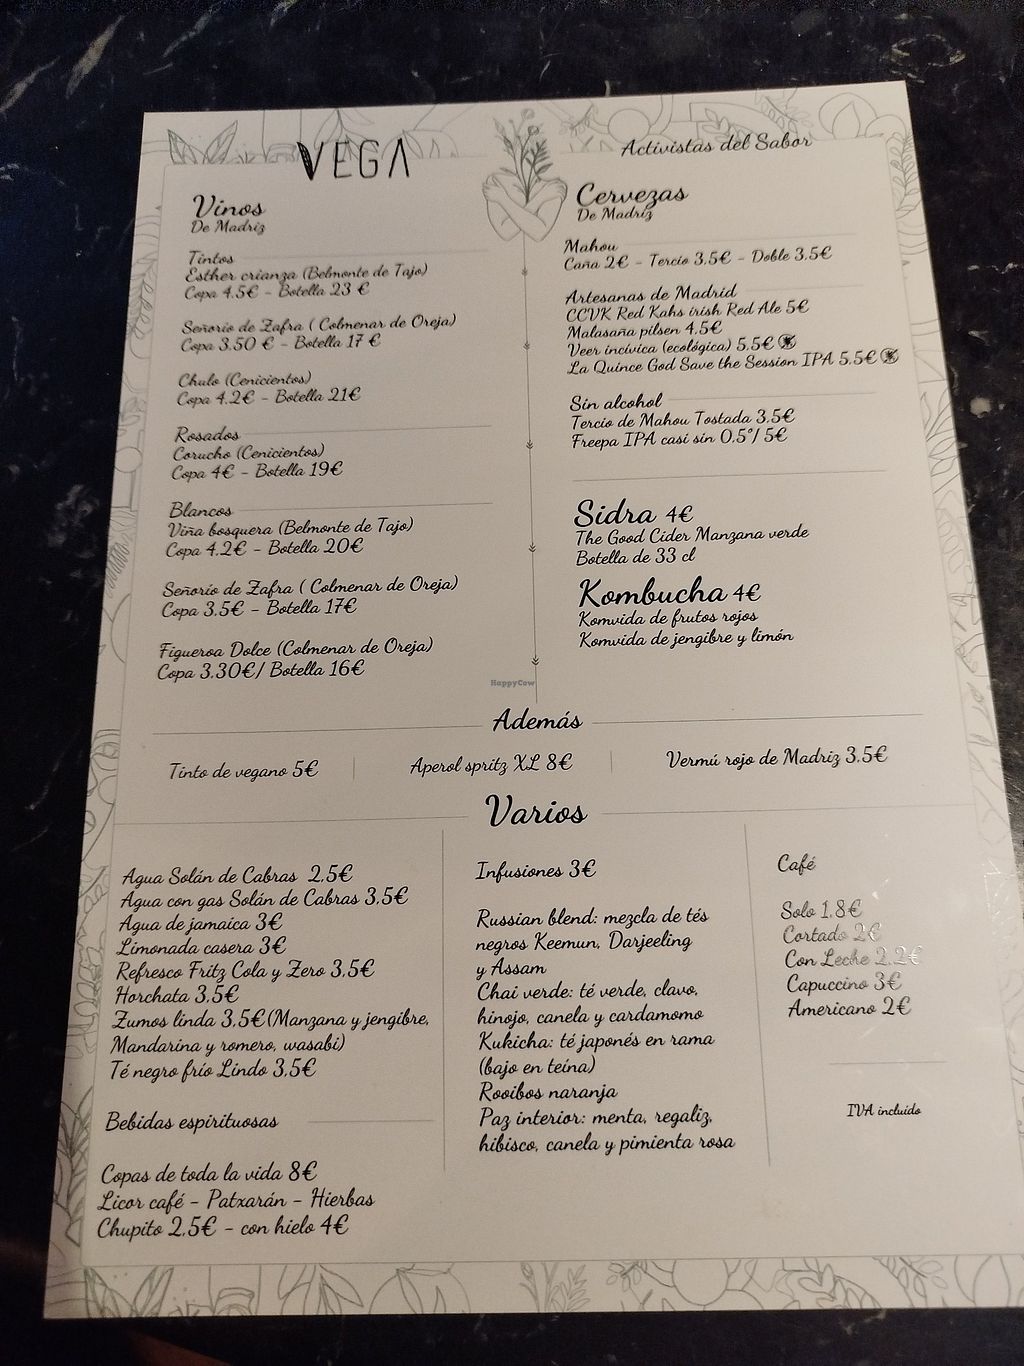 VEGA
Activistas del Sabor
Vinos
De Madriz
Tintos
Esther crianza (Belmonte de Tajo)
Copa 4.5€ - Botella 23 €
Señorio de Zafra ( Colmenar de Oreja)
Copa 3.50 € - Botella 17 €
Chulo (Cenicientos)
Copa 4.2€ - Botella 21€
Rosados
Corucho (Cenicientos)
Copa 4€ - Botella 19€
Blancos
Viña bosquera (Belmonte de Tajo)
Copa 4.2€ - Botella 20€
Señorío de Zafra ( Colmenar de Oreja)
Copa 3.5€ - Botella 17€
Figueroa Dolce (Colmenar de Oreja)
Copa 3.30€/ Botella 16€
Cervezas
De Madriz
Mahou
Caña 2€ - Tercio 3.5€ - Doble 3.5€
Artesanas de Madrid
CCVK Red Kahs irish Red Ale 5€
Malasaña pilsen 4.5€
Veer incívica (ecológica) 5.5€
La Quince God Save the Session IPA 5.5€
Sin alcohol
Tercio de Mahou Tostada 3.5€
Freepa IPA casi sin 0.5°/ 5€
Sidra 4€
The Good Cider Manzana verde
Botella de 33 cl
Kombucha 4€
Komvida de frutos rojos
Komvida de jengibre y limón
HappyCow
Además
Tinto de vegano 5€
Aperol spritz XL 8€
Vermú rojo de Madriz 3.5€
Varios
Agua Solán de Cabras 2.5€
Agua con gas Solán de Cabras 3.5€
Agua de jamaica 3€
Limonada casera 3€
Refresco Fritz Cola y Zero 3.5€
Horchata 3.5€
Zumos linda 3.5€(Manzana y jengibre,
Mandarina y romero, wasabi)
Té negro frío Lindo 3.5€
Bebidas espirituosas
Copas de toda la vida 8€
Licor café - Patxarán - Hierbas
Chupito 2.5€ - con hielo 4€
Infusiones 3€
Russian blend: mezcla de tés
negros Keemun, Darjeeling
y Assam
Chai verde: té verde, clavo,
hinojo, canela y cardamomo
Kukicha: té japonés en rama
(bajo en teína)
Rooibos naranja
Paz interior: menta, regaliz,
hibisco, canela y pimienta rosa
Café
Solo 1.8€
Cortado 2€
Con Leche 2.2€
Capuccino 3€
Americano 2€
IVA incluído